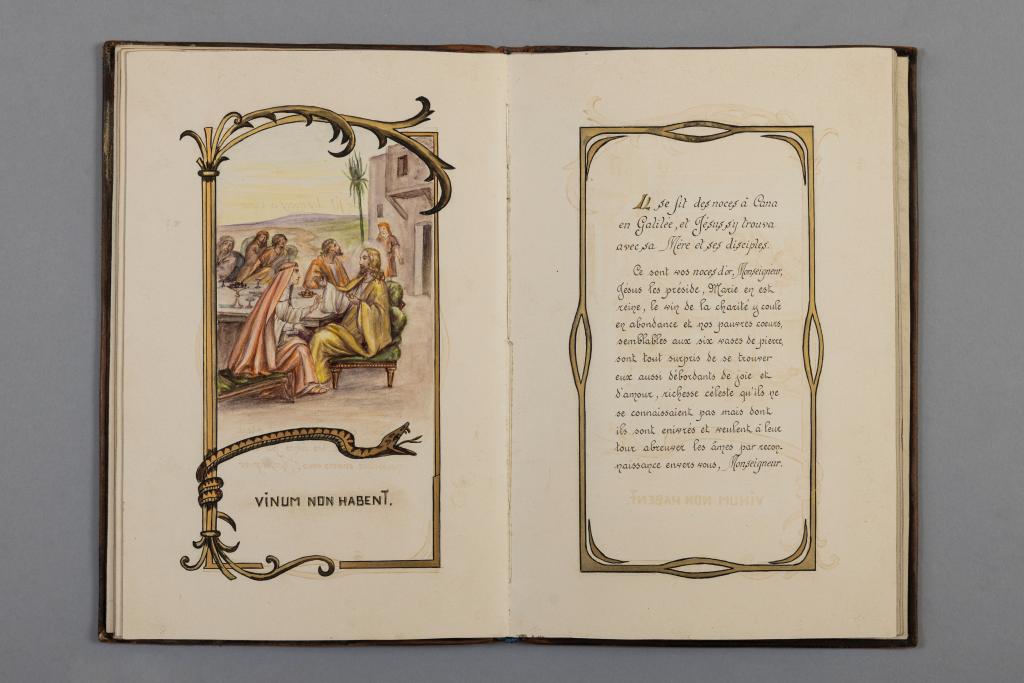 VINUM NON HABENT.
Il se fit des noces à Cana
en Galilée, et Jésus s'y trouva
avec sa Mère et ses disciples.
Ce sont vos noces d'or, Monseigneur,
Jésus les préside, Marie en est
reine, le vin de la charité y coule
en abondance et nos pauvres cœurs,
semblables aux six vases de pierre,
sont tout surpris de se trouver
eux aussi débordants de joie et
d'amour, richesse céleste qu'ils ne
se connaissaient pas mais dont
ils sont enivrés et veulent à leur
tour abreuver les âmes par recon-
naissance envers vous, Monseigneur.